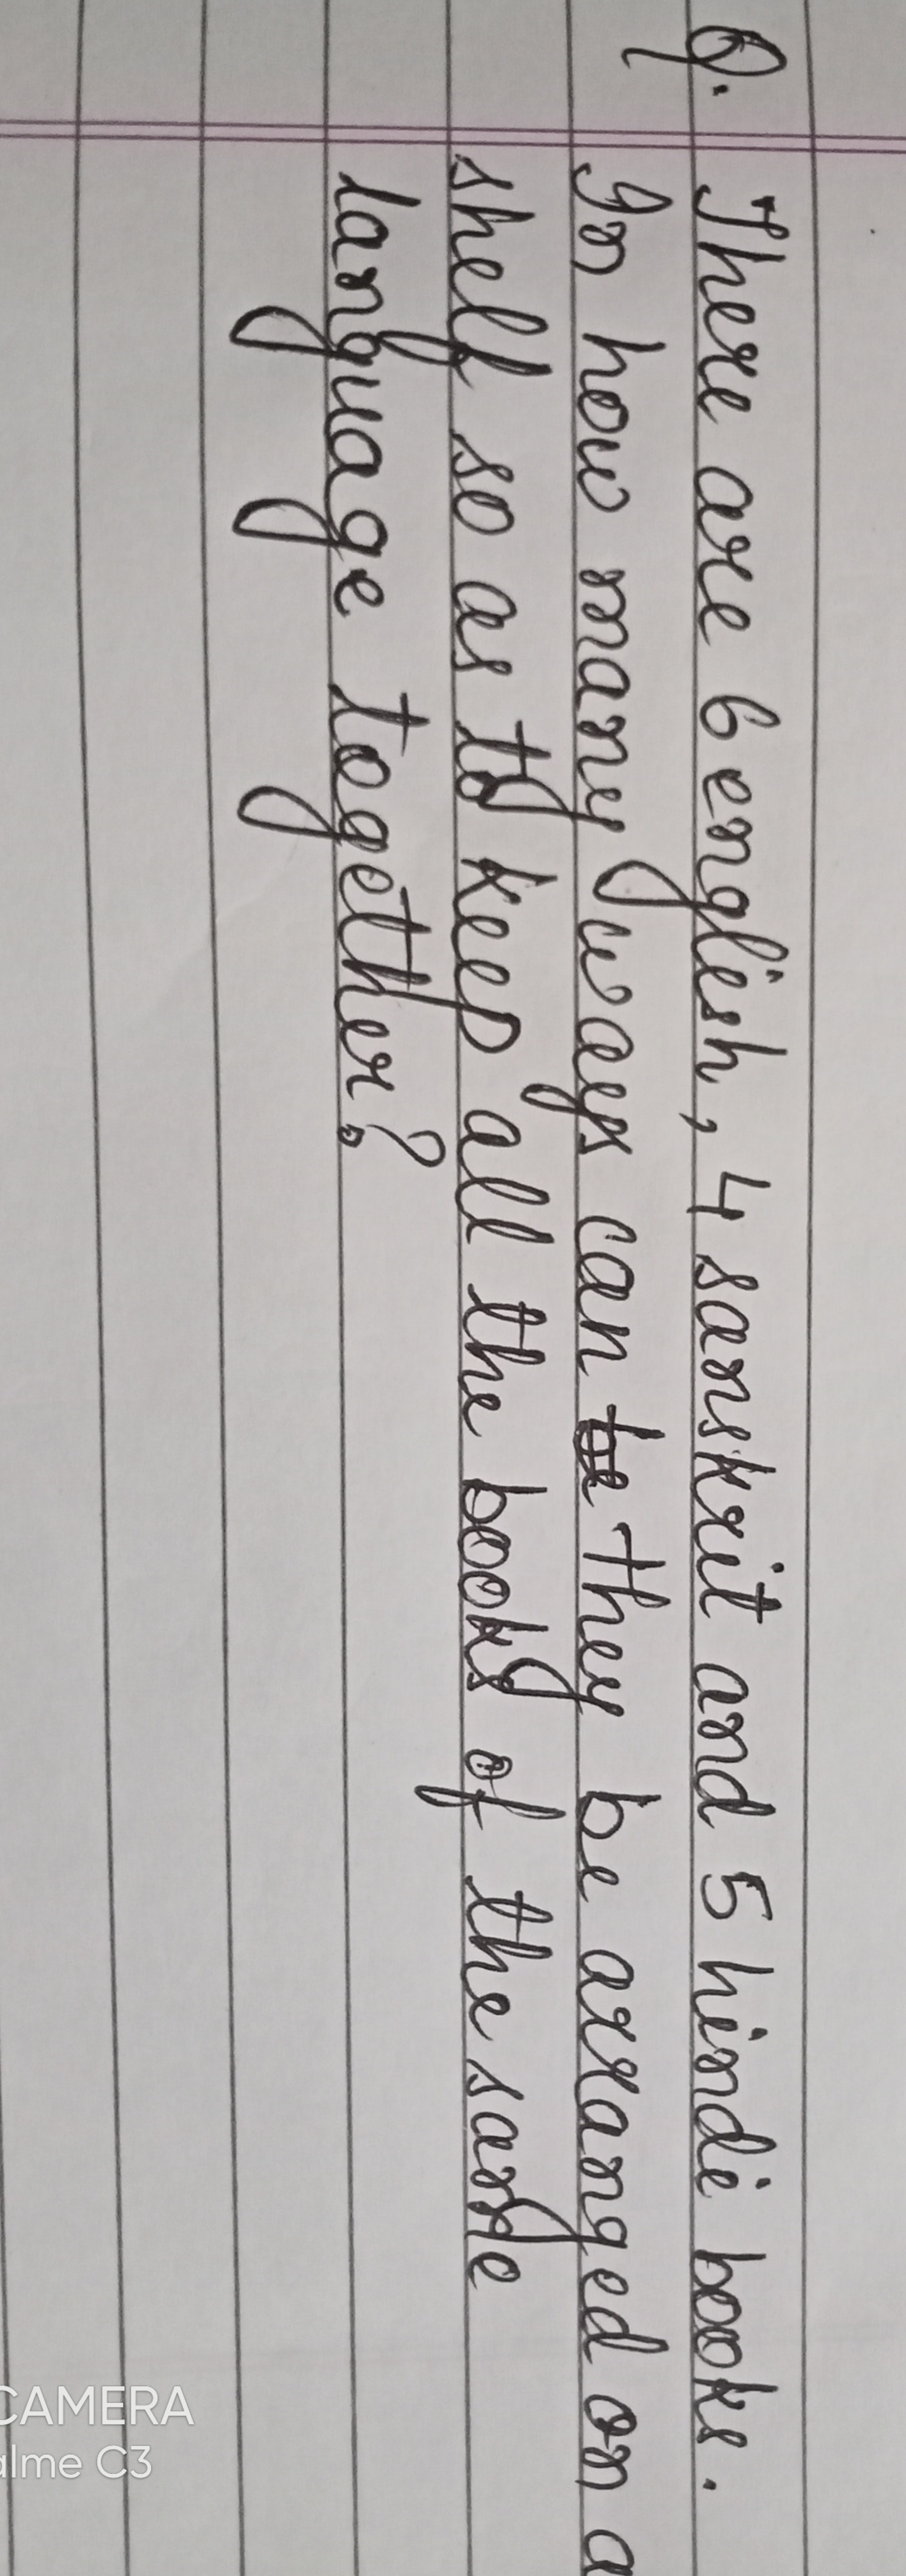 Q. There are 6 english, 4 sanskrit and 5 hindi books.
In how many ways can be they be arranged on a
shelf so as to keep all the books of the same
language together?
CAMERA
alme C3